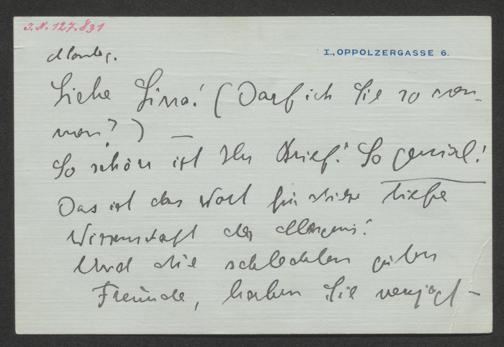 J.N. 127.831
I., OPPOLZERGASSE 6.
Montag.
Liebe Gina! (Darf ich Sie so nen-
nen?) —
So schön ist Ihr Brief! So genial!
Das ist das Wort für diese tiefe
Wissenschaft des Morgens!
Und die schlechten guten
Freunde, haben Sie verjagt —